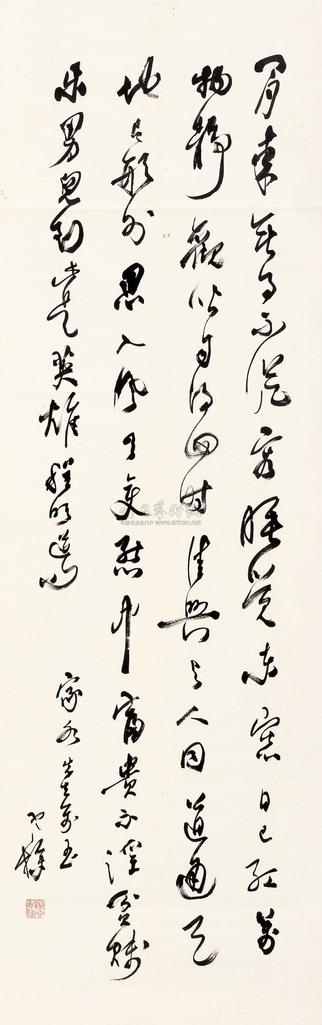 閒來無事不從容睡覺東窗日已紅萬
物靜觀皆自得四時佳興與人同道通天
地有形外思入風雲變態中富貴不淫貧賤
樂男兒到此是英雄程明道詩
先生
www.artron.net